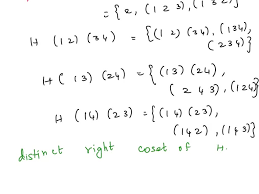 = {e, (1 2 3), (1 3 2)}
H (1 2) (3 4) = {(1 2) (3 4), (134),
(2 3 4)}
H ( 1 3) (2 4) = {(1 3) (2 4),
(2 4 3), (124)}
H (1 4) (2 3) = {(1 4) (2 3),
(1 4 2), (1 4 3)}
distinct right coset of H.